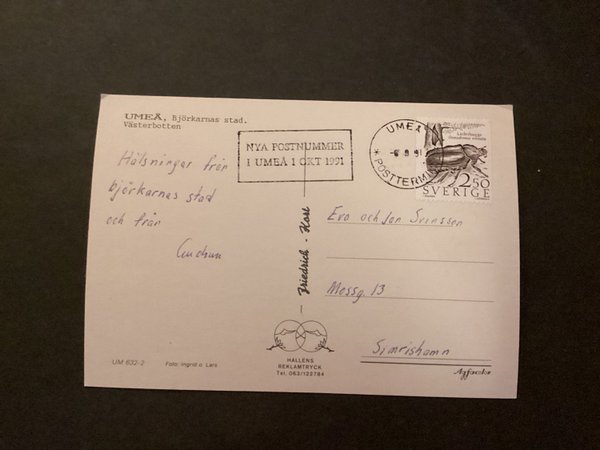 UMEÅ, Björkarnas stad.
Västerbotten
NYA POSTNUMMER
I UMEÅ 1 OKT 1991
UMEÅ
-6 9 91
* POSTTERM
Läderbagge
Osmoderma eremita
2.50
SVERIGE
Hälsningar från
björkarnas stad
och från
Gudrun
Friedrich - Karl
Eva och Jan Svensson
Messg. 13
Simrishamn
HALLENS
REKLAMTRYCK
Tel. 063/122784
UM 632-2
Foto: Ingrid o. Lars